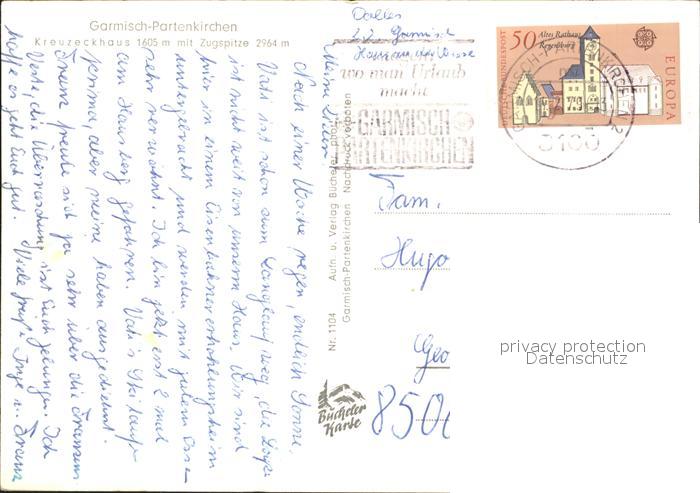 Garmisch-Partenkirchen
Kreuzeckhaus 1605 m mit Zugspitze 2964 m
2.Z. Garmisch
wo man Urlaub
macht
GARMISCH
PARTENKIRCHEN
50
Altes Rathaus
Regensburg
DEUTSCHE BUNDESPOST
EUROPA
GARMISCH-PARTENKIRCHEN 2
8100
Meine
Nach einer Woche regen, endlich Sonne.
Vati ist schon zum Langlauf weg, die Loipe
ist nicht weit von unserm Haus. Wir sind
hier in einem Eisenbahnererholungsheim
untergebracht und werden mit gutem Essen
sehr verwöhnt. Ich bin jetzt erst 2 mal
am Hausberg gefahren. Vati's Ski laufen
prima, aber meine haben ausgedient.
Franz freute sich ja sehr über die
Vase, die Überraschung ist Euch gelungen. Ich
hoffe es geht Euch gut. Viele Grüße Inge u. Franz
Nr. 1104 Aufn. u. Verlag Bücheler, phot.
Garmisch-Partenkirchen Nachdruck verboten
Bücheler
Karte
Fam.
Hugo
Geo
850
privacy protection
Datenschutz